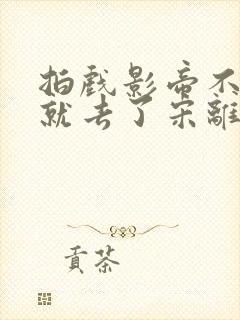 拍戏影帝不
就去了宋離
貢茶